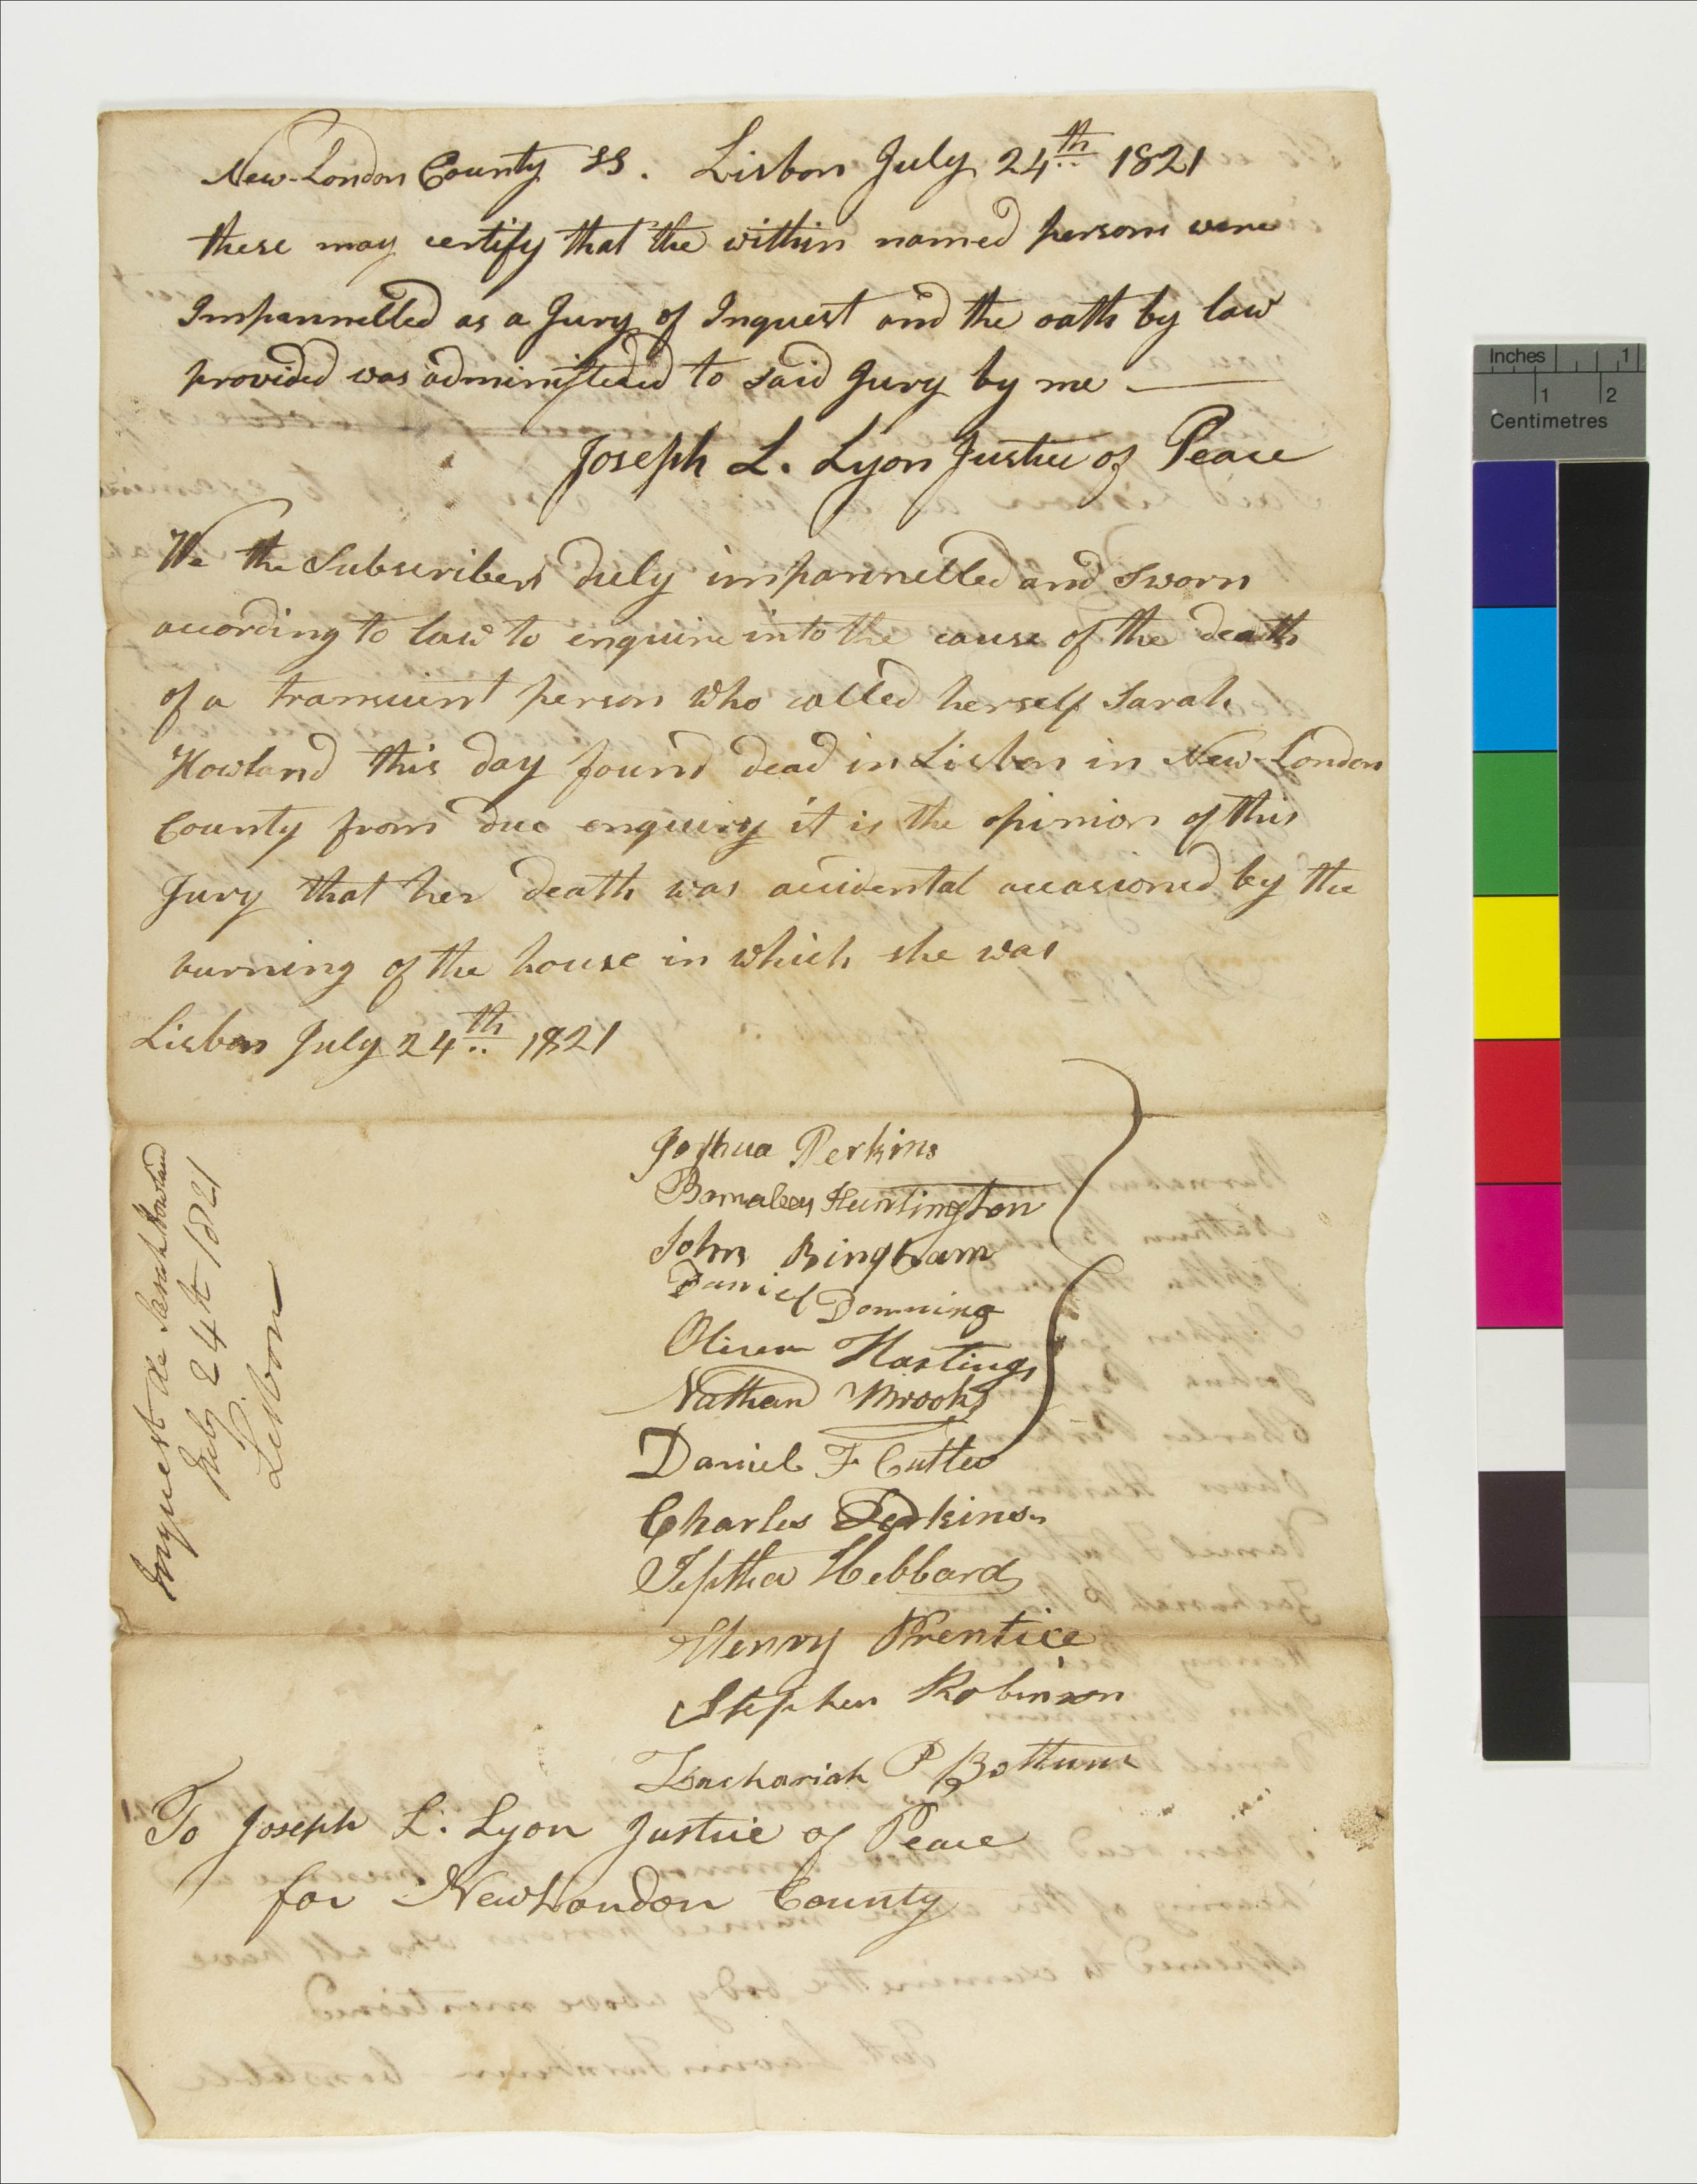 New-London County ss. Lisbon July 24th 1821
these may certify that the within named persons were
Impannelled as a Jury of Inquest and the oath by law
provided was administered to said Jury by me
Joseph L. Lyon Justice of Peace
We the Subscribers duly impannelled and Sworn
according to law to enquire into the cause of the death
of a transient person who called herself Sarah
Howland this day found dead in Lisbon in New-London
County from due enquiry it is the opinion of this
Jury that her death was accidental occasioned by the
burning of the house in which she was
Lisbon July 24th 1821
Joshua Perkins
Barnabas Huntington
John Bingham
Daniel Downing
Oliver Hastings
Nathan Brooks
Daniel F Cutler
Charles Perkins
Jeptha Hebbard
Henry Prentice
Stephen Robinson
Zachariah P Bottum
To Joseph L. Lyon Justice of Peace
for New London County
Inquest de Sarah Howland
July 24th 1821
Lisbon
Inches 1
1 2
Centimetres